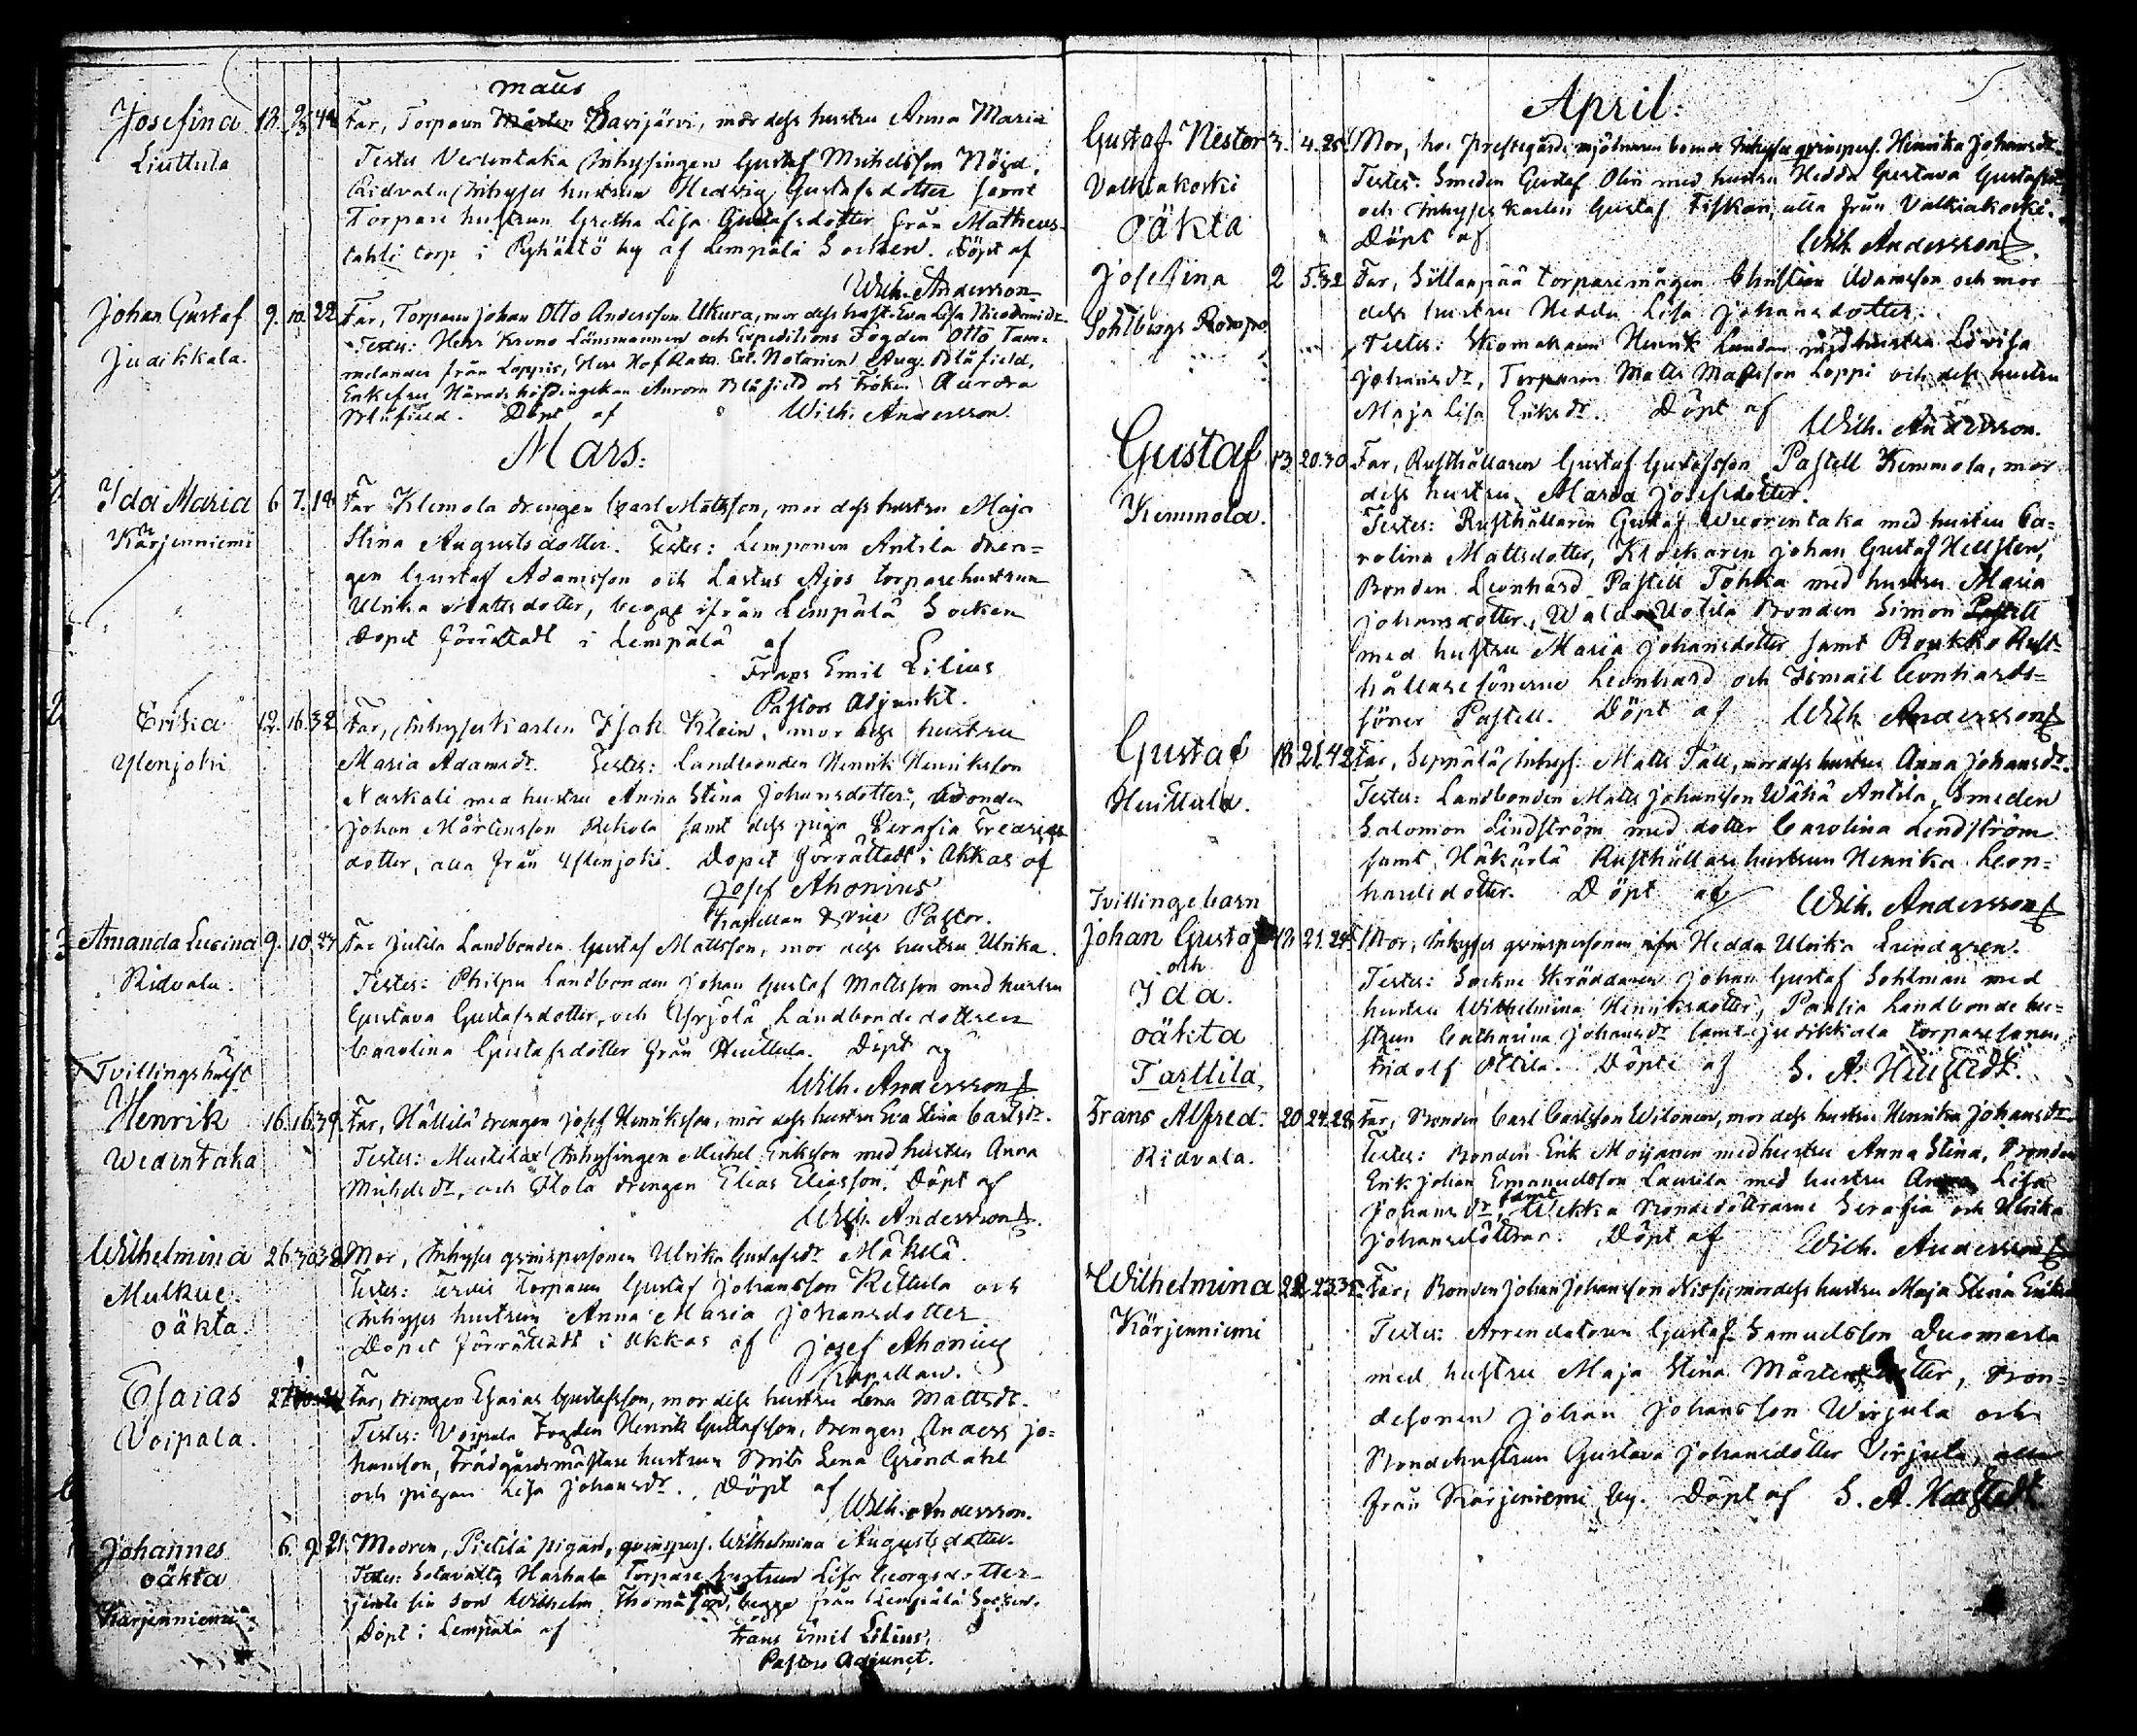 maus
Josefina 18. 44 Far, Torparn Savijärvi, mor dess hustru Anna Maria
Liuttula Testes Inhysingen Gustaf Michelsson Nöjd,
Ridvala Inhyses hustrun Hedvig Gustafsdotter samt
Torpare hustrun Gretha Lisa Gustafsdotter från Matheus-
tahli torp i by af Lempälä Socken. Döpt af
Wilh. Andersson
Johan Gustaf 9. 10. 22 Far, Torparn Johan Otto Andersson Ukura, mor dess hust. Eva Lisa
Judikkala. Testes: Herr Krono Länsmannen och Expeditions Fogden Otto Tam-
melander från Loppis, Herr Hof Rätts Notarien Aug. Blåfield,
Enkefru Häradshöfdingskan Aurora Blåfield och Fröken Aurora
Blåfield. Döpt af Wilh. Andersson.
Mars:
Ida Maria 6 7. 18 Far Klemola drengen Carl Mattsson, mor dess hustru Maja
Kärjenniemi Stina Augustsdotter. Testes: Lemponen Antila dren=
gen Gustaf Adamsson och Lastus Ajos torparehustrun
Ulrika Mattsdotter, begge ifrån Lempälä Socken
Dopet förrättadt i Lempälä af
Frans Emil Lilius
Pastors Adjunkt.
Erika 12. 16. 32 Far, Inhyseskarlen Isak Klein, mor dess hustru
Ylenjoki Maria Adamsdr. Testes: Landbonden Henrik Henriksson
Naskali med hustru Anna Stina Johansdotter, Bonden
Johan Mårtensson Rekola samt dess piga Serafia Fredriks
dotter, alla från Ylenjoki. Dopet förrättadt i Akkas af
Josef Ahonius
Kapellan & vice Pastor.
Amanda Lusina 9. 10. Far Jutila Landbonden Gustaf Mattsson, mor dess hustru Ulrika.
Ridvala. Testes: Philpu Landbonden Johan Gustaf Mattsson med hustru
Gustava Gustafsdotter, och Yrjölä Landbonde dottren
Carolina Gustafsdotter från Huittula. Döpt af
Tvillingshälft Wilh. Andersson
Henrik 16. 16. 39. Far, Hällilä drengen Josef Henriksson, mor dess hustru Eva Stina Carlsdr.
Wedentaka Testes: Mustilax Inhysingen Michel Eriksson med hustru Anna
Michelsdr, och Ilola drengen Elias Eliasson. Döpt af
Wilh. Andersson.
Wilhelmina 26 30 38 Mor, Inhyses qvinspersonen Ulrika Gustafsdr Mäkelä.
Mulkue. Testes: Tervis Torparen Gustaf Johansson Kettula och
oäkta. Inhyses hustrun Anna Maria Johansdotter
Dopet förrättadt i Akkas af Josef Ahonius
Kapellan.
Esaias 27 Far, drengen Esaias Gustafsson, mor dess hustru Lena Mattsdr.
Voipala. Testes: Voipala Fogden Henrik Gustafsson, drengen Anders Jo=
hansson, Trädgårdsmästare hustrun Brita Lena Gröndahl
och pigan Lisa Johansdr. Döpt af
Wilh. Andersson.
Johannes 6. 9 21. Modren, Pietilä pigan, qvinspers. Wilhelmina Augustsdotter.
oäkta Testes: Sotavalta Harhala Torpare hustrun Lisa Georgsdotter
Kärjenniemi jemte sin son Wilhelm Thomasson, begge från Lempälä Socken.
Döpt i Lempälä af Frans Emil Lilius,
Pastors Adjunct.
April:
Gustaf Nestor 3. 4. 25. Mor, hos Prestegårds mjölnaren boende Inhyses qvinspers. Henrika Johansdr.
Valkiakoski Testes: Smeden Gustaf Olin med hustru Hedda Gustava
oäkta och Inhyses karlen Gustaf Fiskari, alla från Valkiakoski.
Döpt af Wilh. Andersson.
Josefina 2 5. 32 Far, Sillanpää torparemågen Christian Adamsson och mor
Sohlbergs dess hustru Hedda Lisa Johansdotter.
Testes: Skomakaren Henrik Lundan med hustru Lovisa
Johansdr, Torparen Matts Mattsson Loppi och dess hustru
Maja Lisa Eriksdr. Döpt af Wilh. Andersson.
Gustaf 13. 20. 30 Far, Rusthållaren Gustaf Gustafsson Pastell Kemmola, mor
Kemmola. dess hustru Maria Josefsdotter.
Testes: Rusthållaren Gustaf Wuorentaka med hustru Ca=
rolina Mattsdotter, Klockaren Johan Gustaf Hellsten,
Bonden Leonhard Pastell Tohka med hustru Maria
Johansdotter, Uotila Bonden Simon Pastell
med hustru Maria Johansdotter samt Roukko Rust=
hållaresönerne Leonhard och Ismail Leonhards=
söner Pastell. Döpt af Wilh Andersson
Gustaf 18 21. 42 Far, Seppälä Inhys: Matts Täll, mor dess hustru Anna Johansdr.
Huittula. Testes: Landbonden Matts Johansson Wähä Antila, Smeden
Salomon Lindström med dotter Carolina Lindström
samt Häkärlä Rusthållare hustrun Henrika Leon=
hardsdotter. Döpt af Wilh. Andersson
Tvillingebarn
Johan Gustaf 13. 21. Mor, Inhyses qvinspersonen Hedda Ulrika Lundgren.
och
Ida. Testes: Sockne Skräddaren Johan Gustaf Sohlman med
oäkta hustru Wilhelmina Henriksdotter, Landbonde hu-
Tarttila, strun Catharina Johansdr samt Judikkala torparesonen
Fridolf Ollila. Döpte af S. A. Hällstedt.
Frans Alfred. 20 24. 28 Far, Bonden Carl Carlsson Wilonen, mor dess hustru Henrika Johansdr
Ridvala. Testes: Bonden Erik Moijanen med hustru Anna Stina, Bonden
Erik Johan Emanuelsson Laurila med hustru Anna Lisa
Johansdr, samt Wekka Bondedöttrarne Serafia och Ulrika
Johansdöttrar. Döpt af Wilh. Andersson
Wilhelmina 22. 23. 35. Far, Bonden Johan Johansson Nissi, mor dess hustru Maja Stina
Kärjenniemi Testes: Arrendatoren Gustaf Samuelsson Duomarla
med hustru Maja Stina Mårtensdotter, Bon=
desonen Johan Johansson Wirjula och
Bondehustrun Gustava Johansdotter Virjula, alla
från Kärjenniemi by. Döpt af S. A. Hällstedt